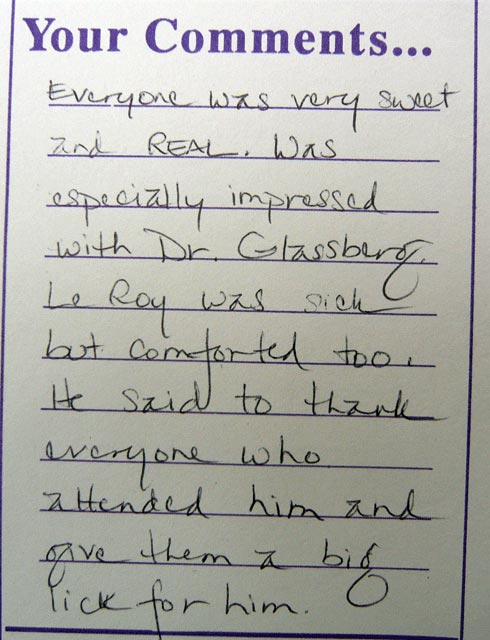 Your Comments...
Everyone was very sweet
and REAL. Was
especially impressed
with Dr. Glassberg.
Le Roy was sick
but comforted too.
He said to thank
everyone who
attended him and
give them a big
lick for him.